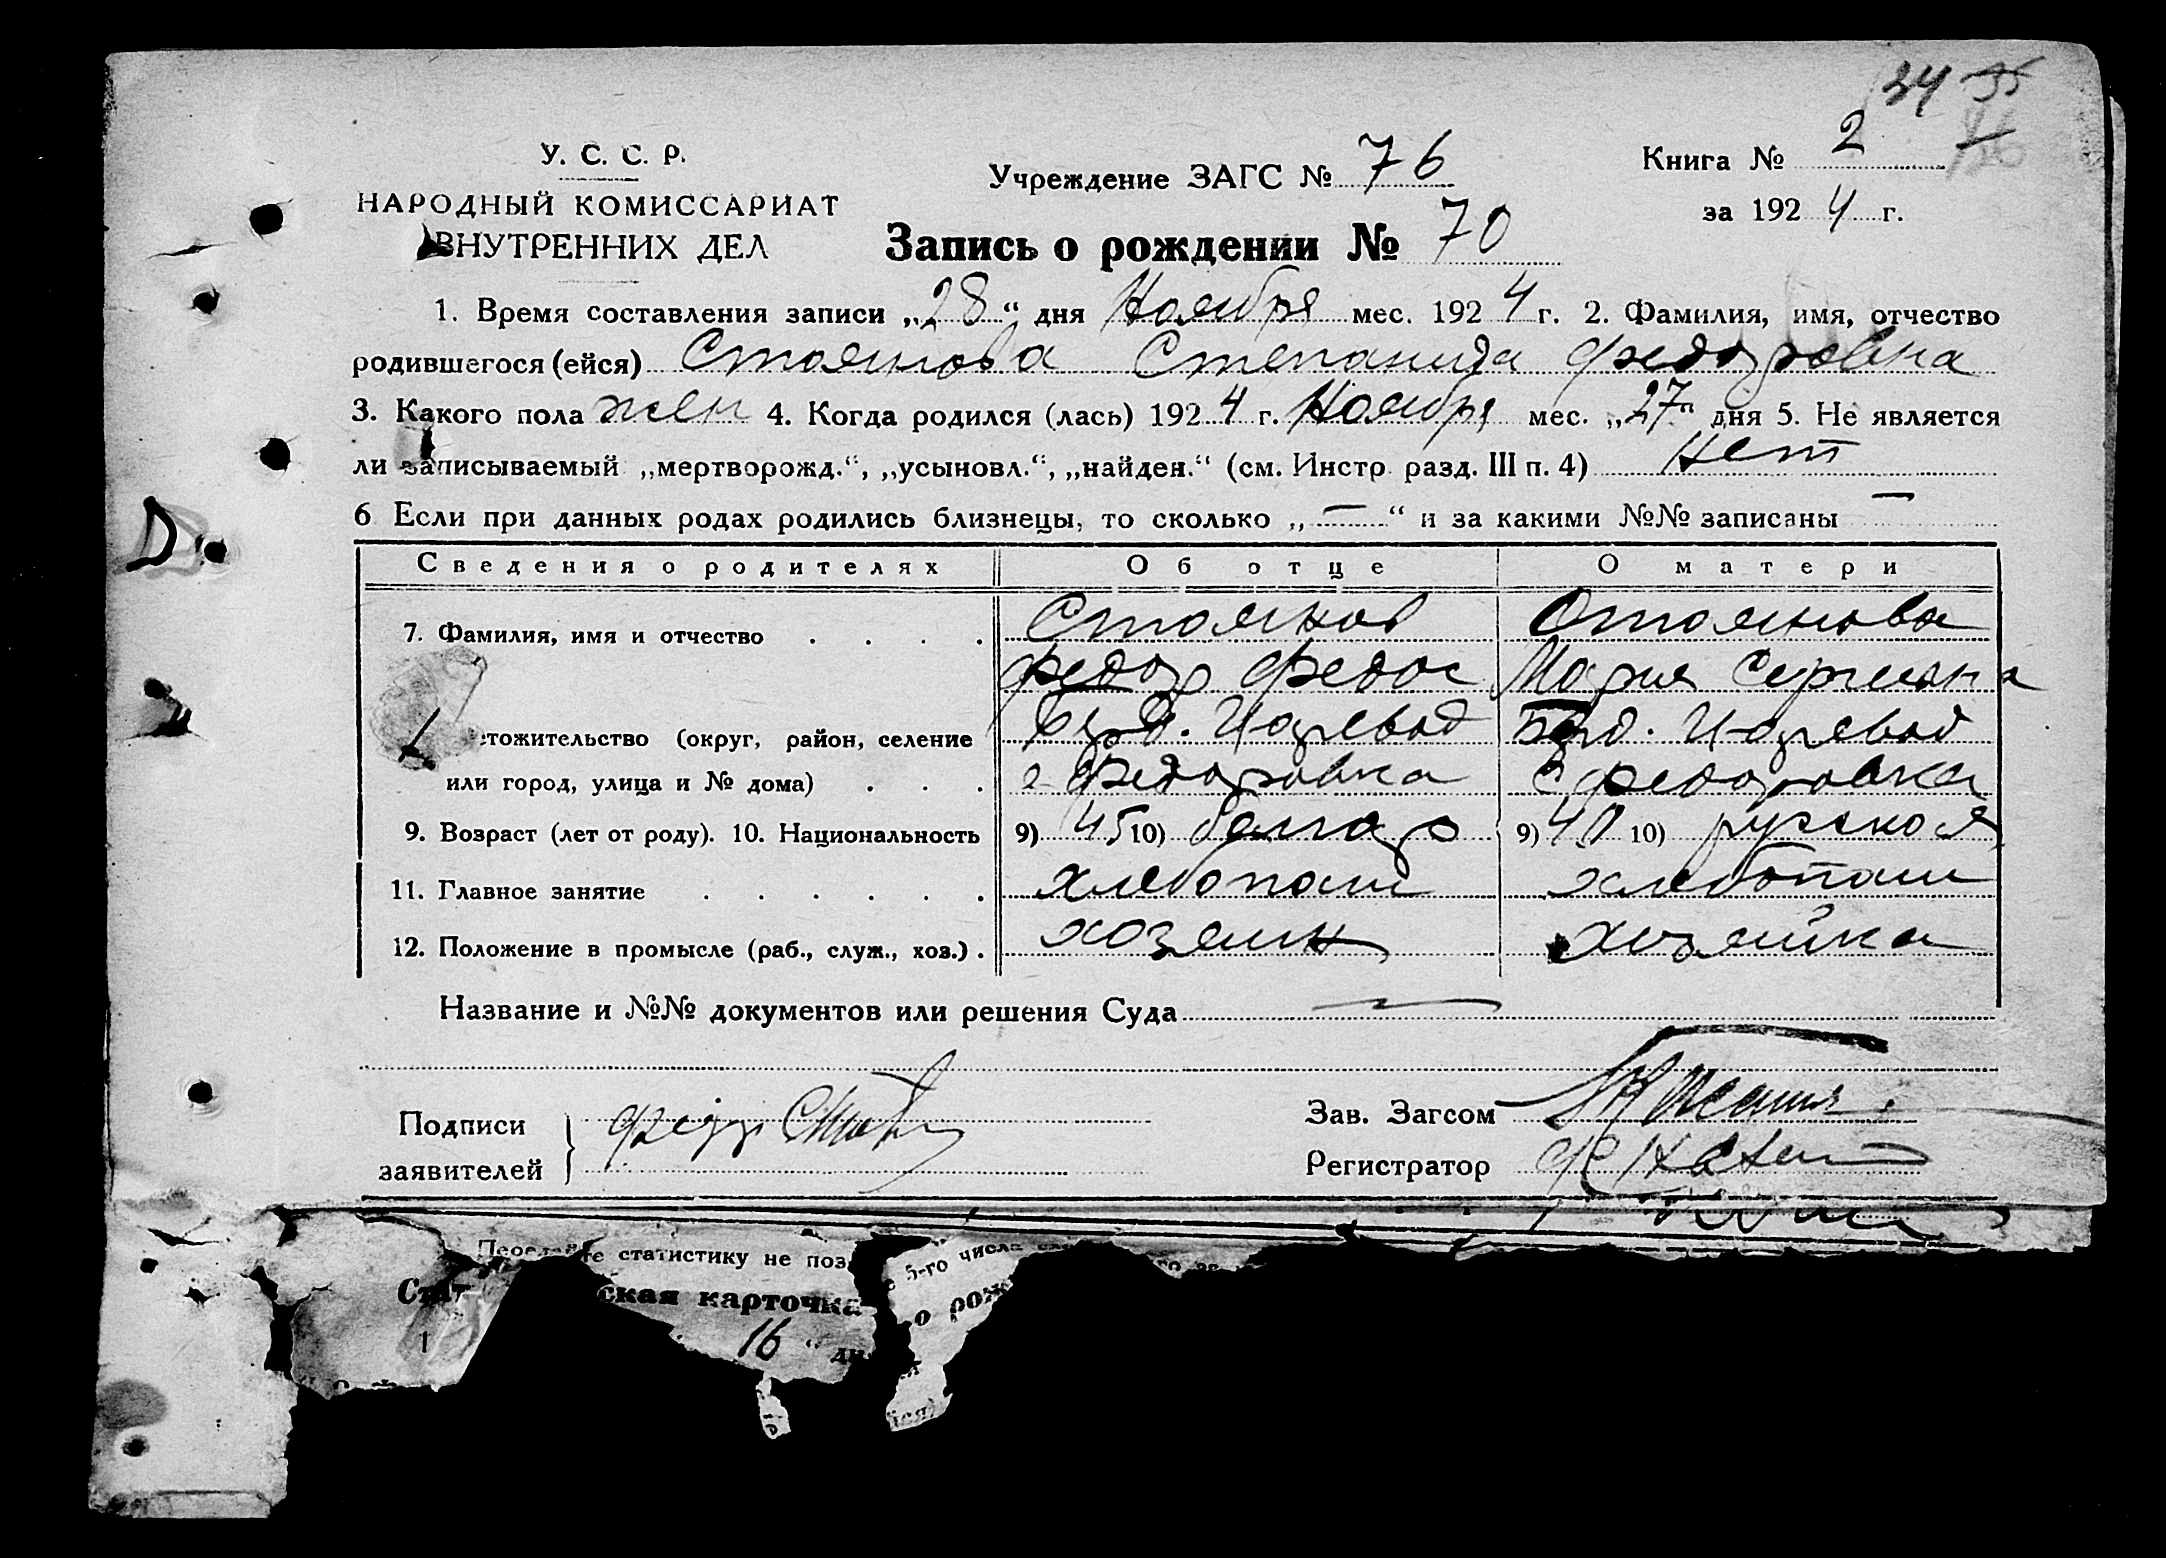 34 35
36
У. С. С. Р.
НАРОДНЫЙ КОМИССАРИАТ
ВНУТРЕННИХ ДЕЛ
Учреждение ЗАГС № 76
Книга № 2
за 1924 г.
Запись о рождении № 70
1. Время составления записи „28“ дня Ноября мес. 1924 г. 2. Фамилия, имя, отчество
родившегося (ейся) Стоянова Степанида Федоровна
3. Какого пола жен 4. Когда родился (лась) 1924 г. Ноября мес. „27“ дня 5. Не является
ли записываемый „мертворожд.“, „усыновл.“, „найден.“ (см. Инстр. разд. III п. 4) Нет
6 Если при данных родах родились близнецы, то сколько „—“ и за какими №№ записаны —
Сведения о родителях Об отце О матери
7. Фамилия, имя и отчество . . . . Стоянов Стоянова
Федор Федос Мария Сергеевна
стожительство (округ, район, селение Бердян. Цареводар Бердян. Цареводар
или город, улица и № дома) . . . с Федоровка с Федоровка
9. Возраст (лет от роду). 10. Национальность 9) 45 10) болгар 9) 40 10) русская
11. Главное занятие . . . . . . хлебопаш хлебопаш
12. Положение в промысле (раб., служ., хоз.) . хозяин хозяйка
Название и №№ документов или решения Суда —
Подписи
заявителей
Зав. Загсом
Регистратор
статистику не поз 5-го числа
ская карточка о рож
1 16 “ дн